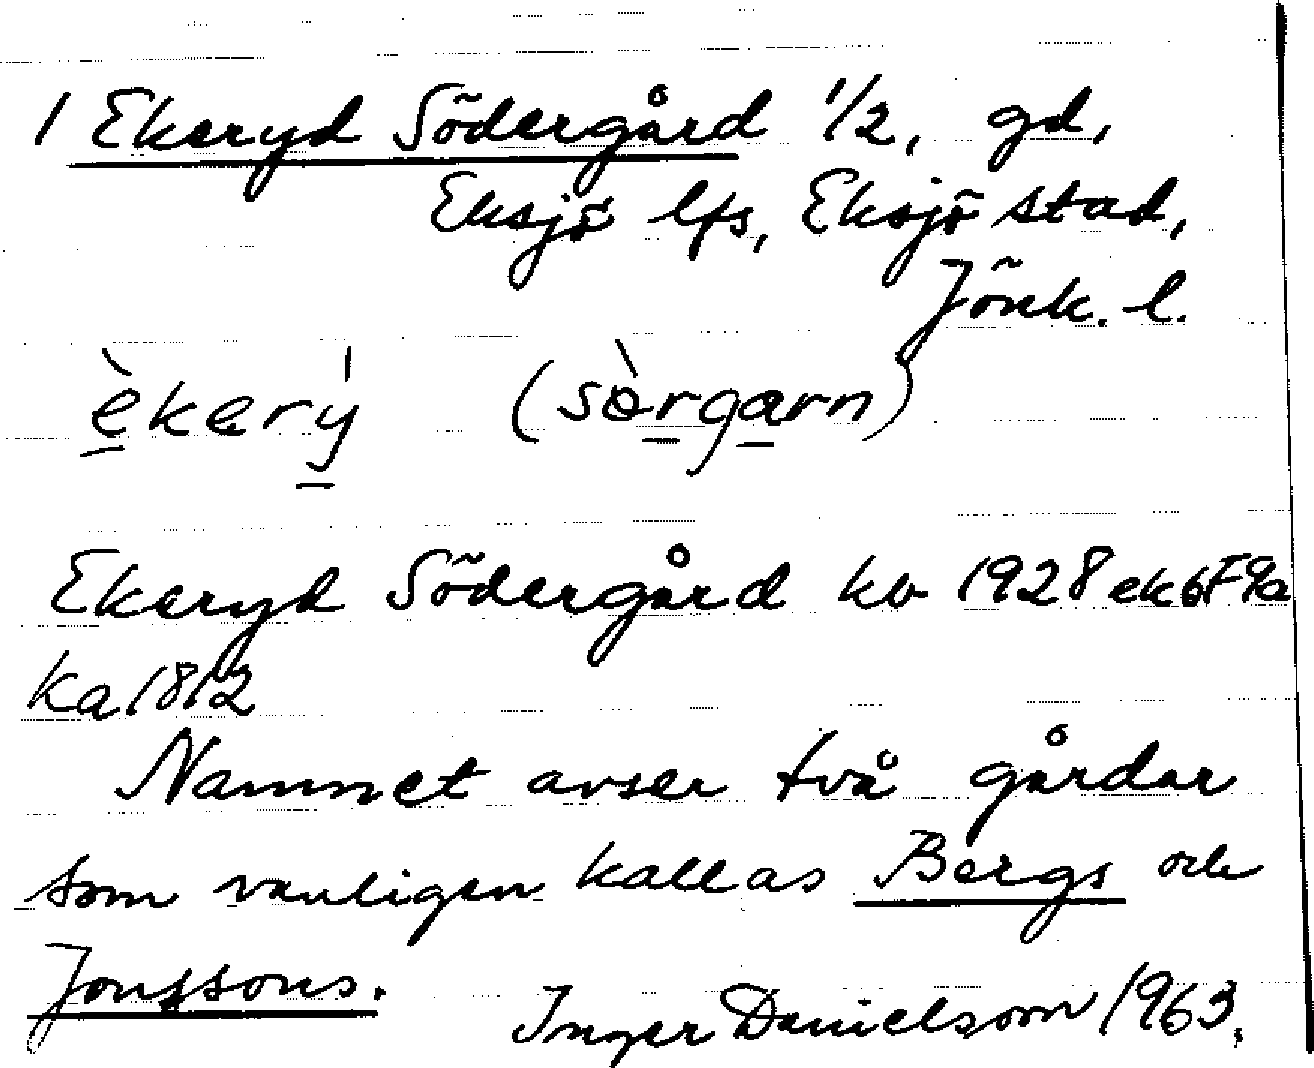 1 Ekeryd Södergård 1/2, gd,
Eksjö lfs, Eksjö stad,
Jönk. l.
èkerý (sòrgarn)
Ekeryd Södergård kb 1928 ek 6F9a
ka 1812
Namnet avser två gårdar
som vanligen kallas Bergs och
Jonssons.
Inger Danielsson 1963.